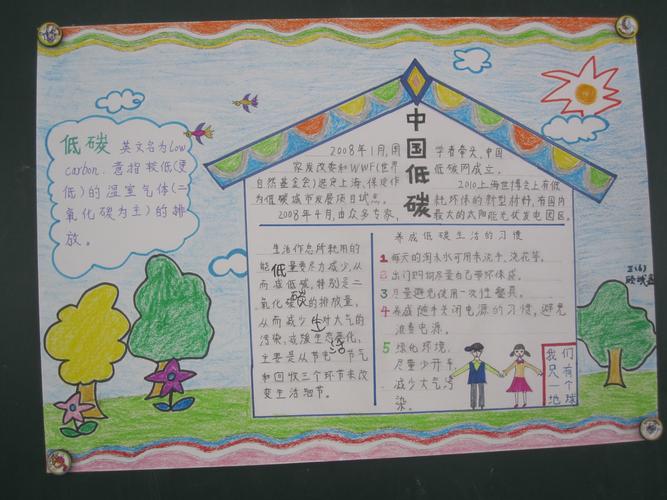 低碳 英文名为low
carbon.意指较低(更
低)的温室气体(二
氧化碳为主)的排
放。
中国低碳
2008年1月,国
家发改委和WWF(世界
自然基金会)选定上海、保定作
为低碳城市发展项目试点。
2008年4月,由众多专家,
学者牵头,中国
低碳网成立。
2010上海世博会上有低
耗环保的新型材料,有国内
最大的太阳能光伏发电园区。
低碳生活
生活作息所耗用的
能量要尽力减少,从
而减低碳,特别是二
氧化碳的排放量,
从而减少对大气的
污染,减缓生态恶化,
主要是从节电 节气
和回收三个环节来改
变生活细节。
养成低碳生活的习惯
1 每天的淘米水可用来洗手、浇花等。
2 出门购物尽量自己带环保袋。
3 尽量避免使用一次性餐具。
4 养成随手关闭电源的习惯,避免
浪费电源。
5 绿化环境,
尽量少开车
减少大气污
染。
我们
只有
一个
地球